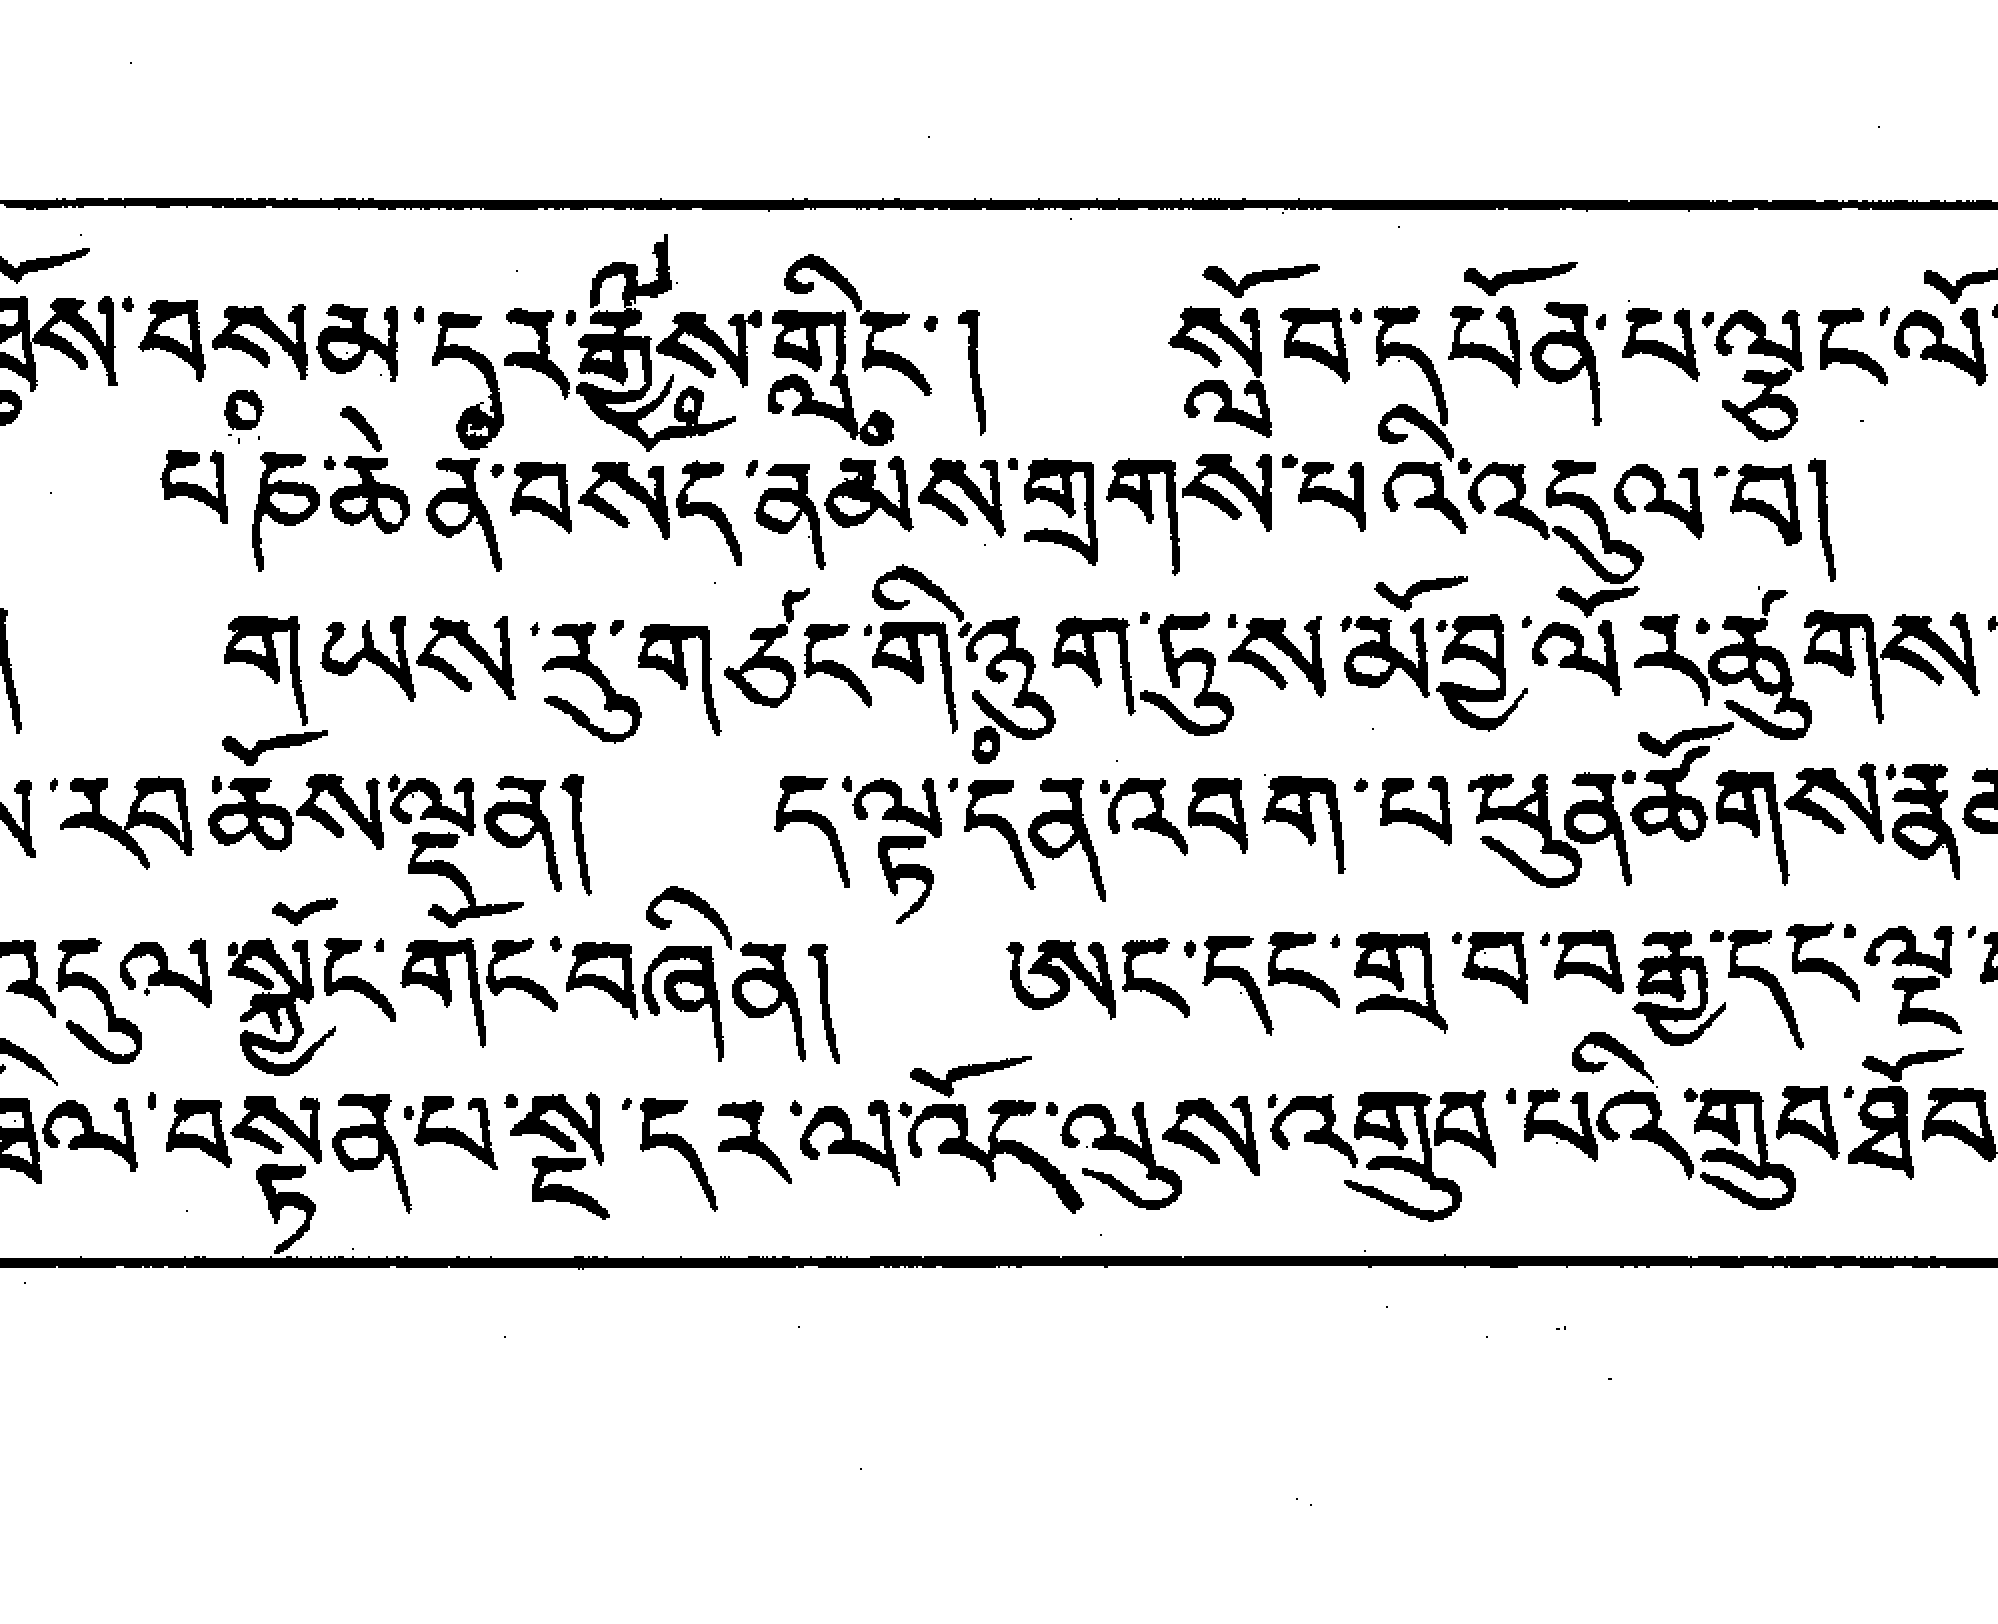 ཐོས་བསམ་དར་རྒྱས་གླིང་། སློབ་དཔོན་པ་ལྕང་ལོ
པཎ་ཆེན་བསོད་ནམས་གྲགས་པའི་འདུལ་བ།
། གཡས་རུ་གཙང་གི་ཉུག་ཏུ་ས་མོ་བྱ་ལོར་ཚུགས་
ས་རབ་ཆོས་ལྡན། ད་ལྟ་དན་འབག་པ་ཕུན་ཚོགས་རྣམ
འདུལ་སྐྱོང་གོང་བཞིན། ཨང་དང་གྲྭ་བ་བརྒྱ་དང་ལྔ་
ཐིལ་བསྟན་པ་སྔ་དར་ལ་འོད་ལུས་འགྲུབ་པའི་གྲུབ་ཐོབ